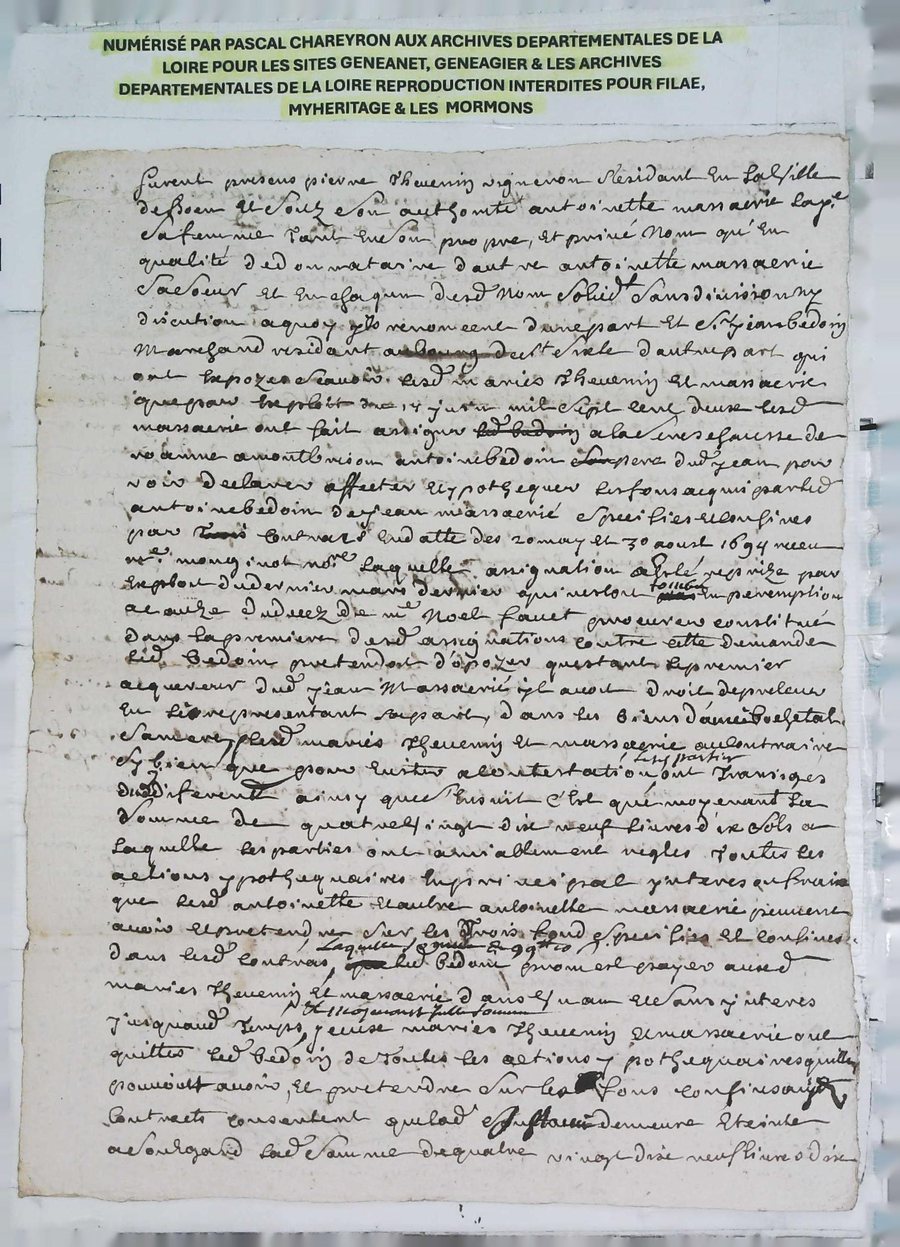 NUMÉRISÉ PAR PASCAL CHAREYRON AUX ARCHIVES DEPARTEMENTALES DE LA
LOIRE POUR LES SITES GENEANET, GENEAGIER & LES ARCHIVES
DEPARTEMENTALES DE LA LOIRE REPRODUCTION INTERDITES POUR FILAE,
MYHERITAGE & LES MORMONS
furent presens pierre Thevenin vigneron Residant En La Ville
de Boen Et Soubz Son authorité antoinette massacrié
Sa femme Tant En Son propre, Et privé Nom qu'En
qualité de donnataire d'autre antoinette massacrie
Sa Soeur Et En chaqun desd Nom Solidt Sans division ny
discution a quoy ils renoncent d'une part Et Sr jean bedoin
Marchand residant au bourg de St Sixte d'autre part qui
ont Expozé Scavoir lesd mariés Thevenin Et massacrie
que par Exploit du 14 juin mil Sept Cent deux lesd
massacrie ont fait assigner led bedoin a la Senechaussé de
roanne a montbrison antoine bedoin Son pere dud jean pour
voir declarer affecter Et ypothequer les fons acquis par led
antoine bedoin de jean massacrié Specifiés Et Confinés
par Trois Contracts En datte des 20 may Et 30 aoust 1694 receu
me monginot nore Laquelle assignation a Esté reprize par
Exploit du dernier mars dernier qui Tombée En peremption
a Cauze du decez de me Noel favet procureur constitué
dans la premiere desd assignations contre Cette demande
led bedoin pretendoit d'opozer qu'estant le premier
acquereur dud jean Massacrié il avoit droit de prelever
En le representant Sa part, dans les biens
lesd mariés Thevenin Et massacrie au contraire
les parties
Sy bien que pour Eviter a Contestation ont Transigés
dud diferent ainsy que S'Ensuit C'Est que moyenant La
Somme de quatre Vingt dix neuf livres dix Sols a
Laquelle les parties ont amiablement reglés Toutes les
actions ypothequaires En principal ynterest ou fraix
que lesd antoinette Et autre antoinette massacrie peuvent
avoir Et pretendre Sur les Trois fond Specifiés Et Confinés
Laquelle Somme de 99tt 10 s
dans lesd Contrats, led bedoin promet payer ausd
mariés Thevenin Et massacrie dans Un an Et Sans ynterest
Et Moyenant Telle Somme
jusquaud Temps, yceux mariés Thevenin Et massacrie ont
quittés led bedoin de Toutes les actions ypothequaires quils
pouvoint avoir, Et pretendre Sur les fons Confinés ausd
Contracts consentent que lad demeure Eteinte
a Son Egard lad Somme de quatre vingt dix neuf livres dix